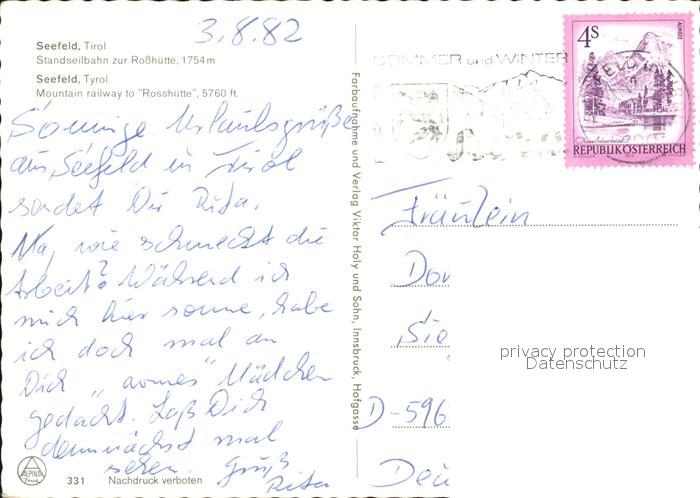 3.8.82
Seefeld, Tirol
Standseilbahn zur Roßhütte, 1754 m
Seefeld, Tyrol
Mountain railway to "Rosshütte", 5760 ft.
Sonnige Urlaubsgrüße
aus Seefeld in Tirol
sendet Dir Rita.
Na, wie schmeckt die
Arbeit? Während ich
mich hier sonne, habe
ich doch mal an
Dich "armes" Mädchen
gedacht. Laß Dich
demnächst mal
sehen. Gruß
Rita
331 Nachdruck verboten
Farbaufnahme und Verlag Viktor Holy und Sohn, Innsbruck, Hofgasse
SOMMER und WINTER
4S
ALMSEE
REPUBLIK ÖSTERREICH
Fräulein
Do
Sie
D-596
Deu
privacy protection
Datenschutz